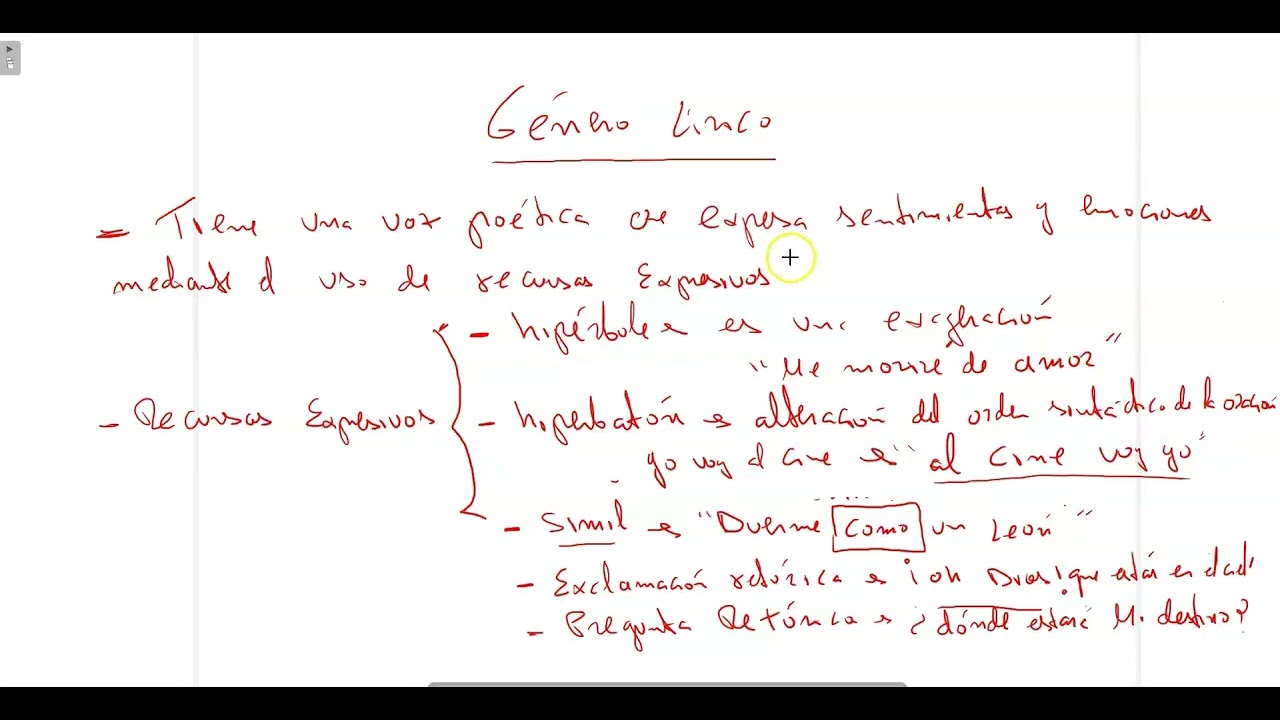 Género Lírico
- Tiene una voz poética que expresa sentimientos y emociones
mediante el uso de recursos Expresivos
- hipérbole es una exageración
"Me moriré de amor"
- Recursos Expresivos
- hiperbatón es alteración del orden sintáctico de la oración
yo voy al cine es "al cine voy yo"
- Simil es "Duerme como un León"
- Exclamación retórica es ¡oh Dios! que estás en
- Pregunta Retórica es ¿dónde estará Mi destino?